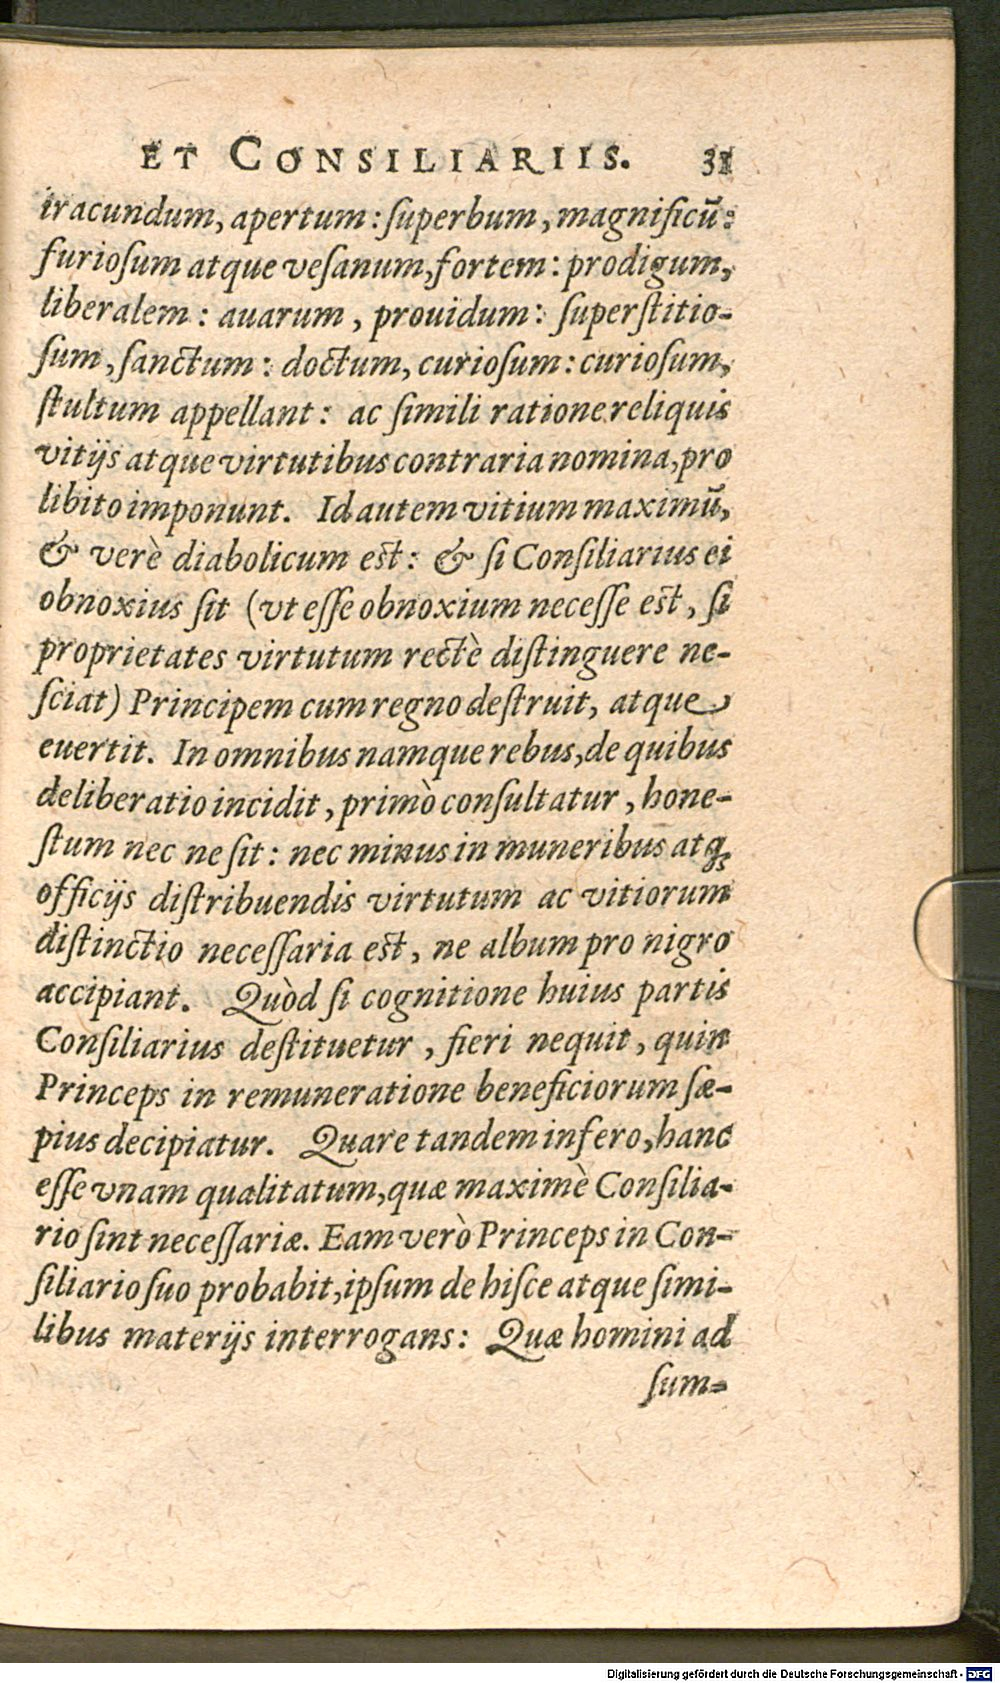 ET CONSILIARIIS. 31
iracundum, apertum: ſuperbum, magnificũ:
furioſum atque veſanum, fortem: prodigum,
liberalem: auarum, prouidum: ſuperſtitio-
ſum, ſanctum: doctum, curioſum: curioſum,
ſtultum appellant: ac ſimili ratione reliquis
vitijs atque virtutibus contraria nomina, pro
libito imponunt. Id autem vitium maximũ,
& verè diabolicum est: & ſi Conſiliarius ei
obnoxius ſit (vt eſſe obnoxium neceſſe est, ſi
proprietates virtutum rectè diſtinguere ne-
ſciat) Principem cum regno deſtruit, atque
euertit. In omnibus namque rebus, de quibus
deliberatio incidit, primò conſultatur, hone-
ſtum nec ne ſit: nec minus in muneribus atq;
officijs diſtribuendis virtutum ac vitiorum
diſtinctio neceſſaria est, ne album pro nigro
accipiant. Quòd ſi cognitione huius partis
Conſiliarius deſtituetur, fieri nequit, quin
Princeps in remuneratione beneficiorum ſæ-
pius decipiatur. Quare tandem infero, hanc
eſſe vnam qualitatum, quæ maximè Conſilia-
rio ſint neceſſariæ. Eam verò Princeps in Con-
ſiliario ſuo probabit, ipſum de hiſce atque ſimi-
libus materijs interrogans: Quæ homini ad
ſum-
Digitalisierung gefördert durch die Deutsche Forschungsgemeinschaft - DFG